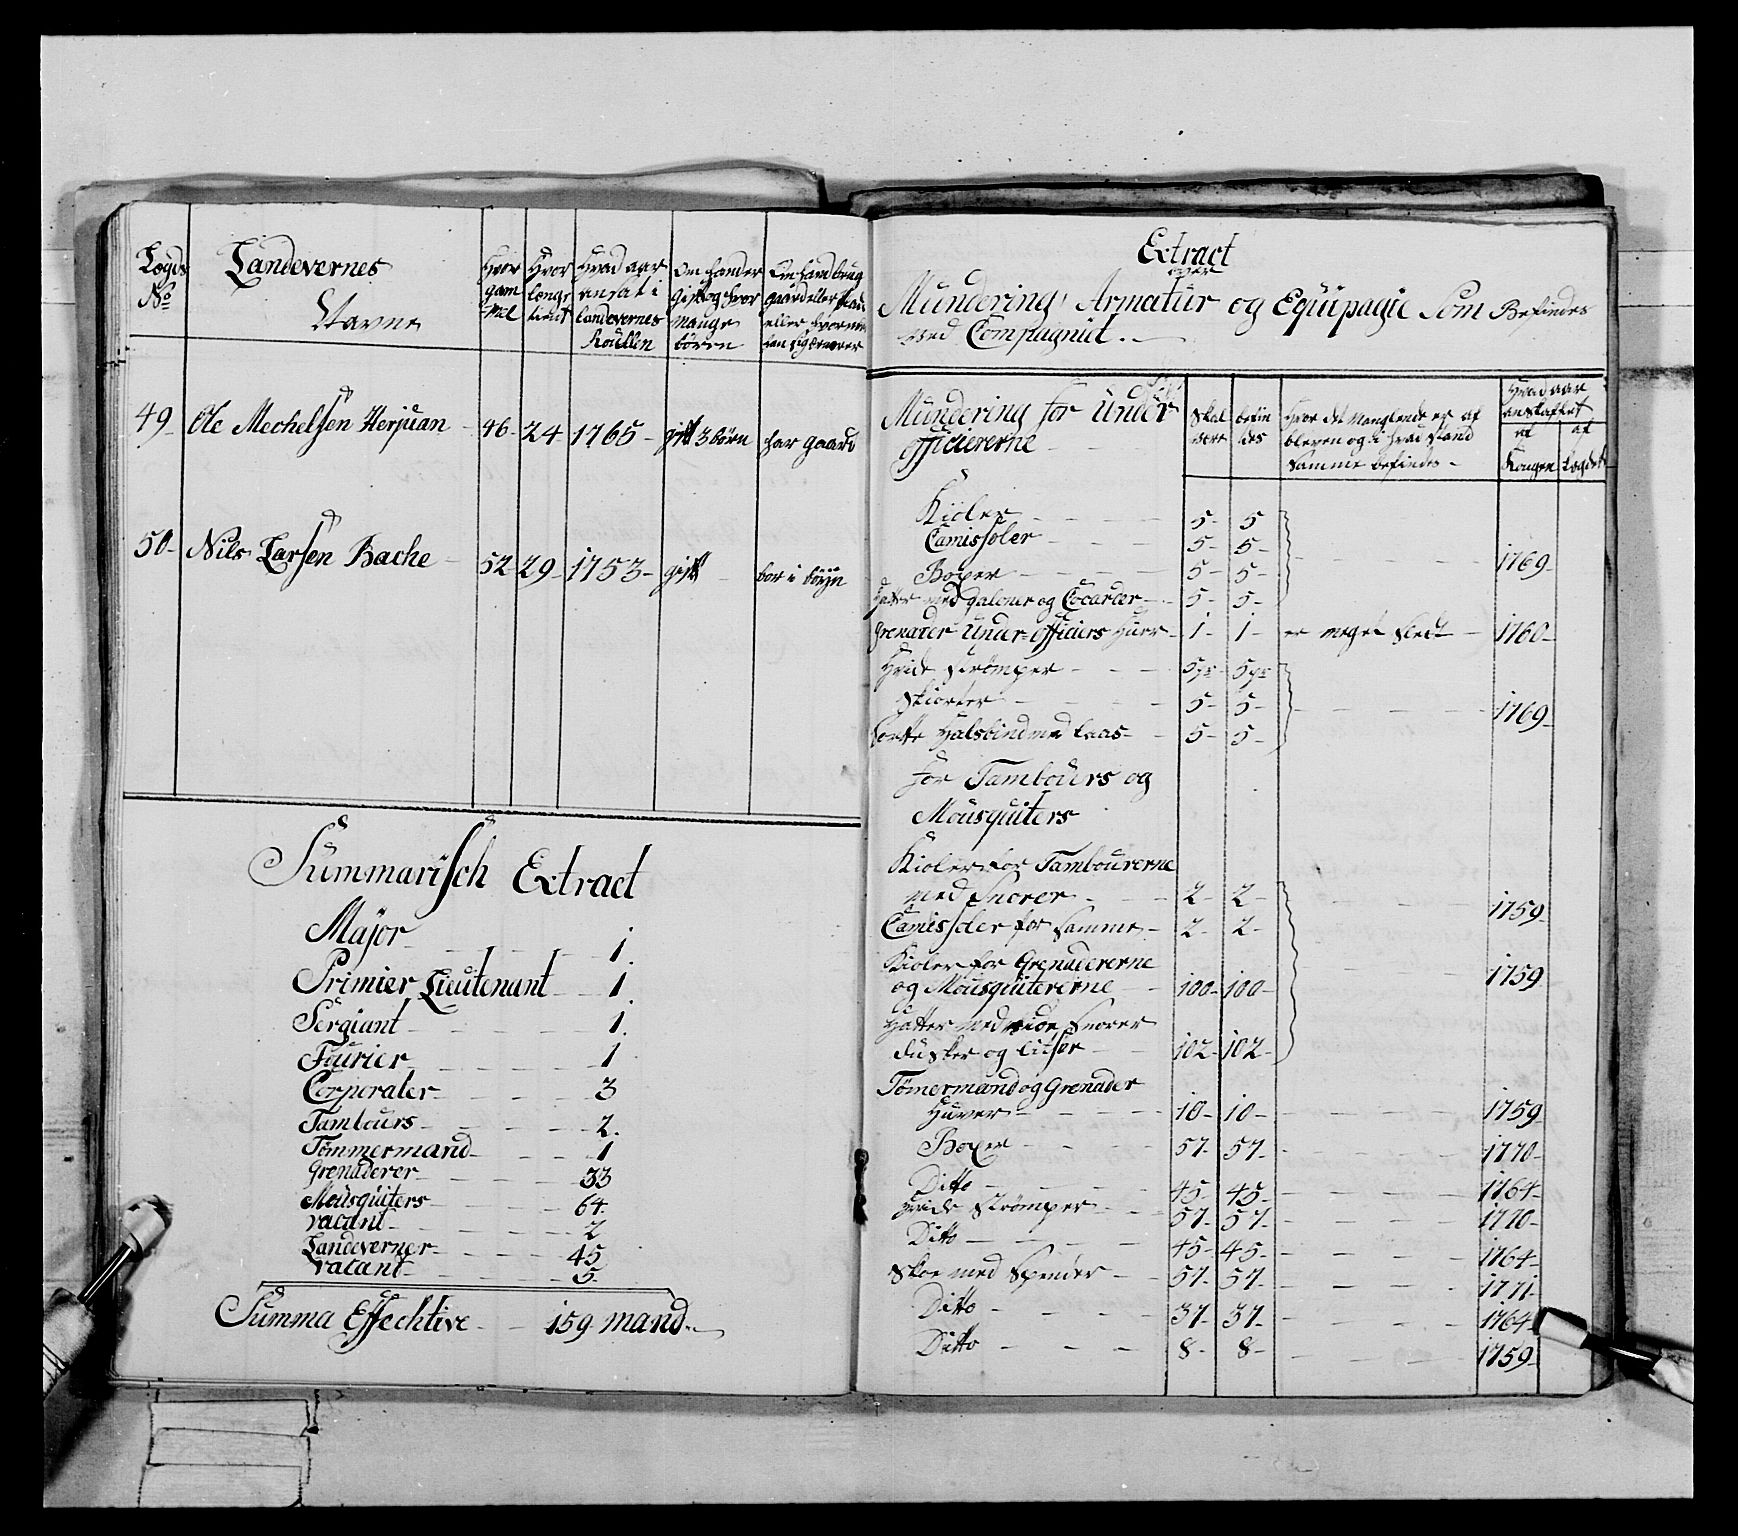 Lægds No
Landevernes Navne
Hvor gammel
Hvor længe tient
Hvad aar ansat i Landevernes Roullen
Om hand er gift og hvor mange børen
Om hand brug gaard eller plads eller hvor
49 - Ole Mechelsen Herjuan - 46 - 24 - 1765 - gift 3 børn har gaard
50 - Nils Larsen Bache - 52 - 29 - 1753 - gift - bor i bøyn
Summarisch Extract
Major - 1.
Primier Lieutenant - 1.
Sergiant - 1.
Fourier - 1
Corporaler - 3
Tambours - 2.
Tømmermand - 1
Grenaderer - 33
Mousquiters - 64
vacant - 2
Landeverner - 45
vacant - 5
Summa Effechtive - 159 mand.
Extract
over
Mundering, Armatur og Equipagie som Befindes
ved Compagniet.
Mundering for Under officiererne
Skal være
befindes
Hvor det Manglende er af
bleven og i hvad stand
samme befindes -
Hvad aar anskaffet
af Kongen
af Lægdet
Kioler - 5 - 5
Camissoler - 5 - 5 -
Boxer - 5 - 5 - 1769 -
Hatte med galoner og Cocarder - 5 - 5 -
Grenader Under-officiers Huer - 1 - 1 - er meget slect - 1760 -
Hvide strømper - 5 pr - 5 pr
Skiorter - 5 - 5 - 1769 -
Sorte Halsbind med laas - 5 - 5 -
for Tambours og
Mousquiters
Kioler for Tambourerne
med Snorer - 2 - 2 - 1759 -
Camissoler for samme - 2 - 2 -
Kioler for Grenadererne
og Mousquitererne - 100 - 100 - 1759
Hatter med hvide Snorer
dusker og litser - 102 - 102 -
Tømermand og Grenader
Huver - 10 - 10 - 1759
Boxer - 57 - 57 - 1770 -
Ditto - 45 - 45 - 1764 -
Hvide Strømper - 57 - 57 - 1770 -
Ditto - 45 - 45 - 1764 -
Skoe med Spender - 57 - 57 - 1771 -
Ditto - 37 - 37 - 1764 -
Ditto - 8 - 8 - 1759 -